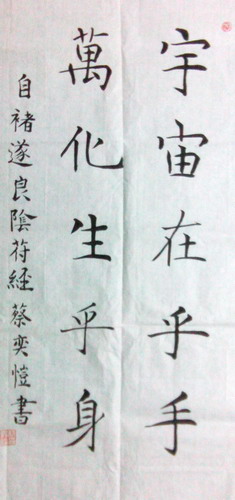 宇宙在乎手
萬化生乎身
自褚遂良陰符經蔡奕愷書